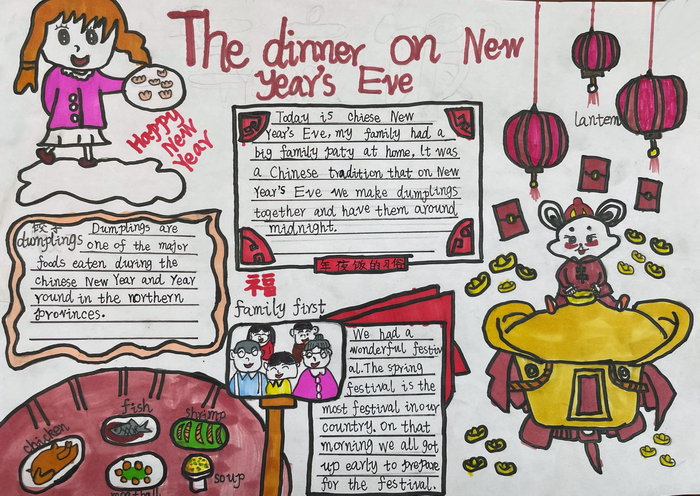 The dinner on New
Year's Eve
Happy
New
Year
lantern
Today is chiese New
Year's Eve, my family had a
big family paty at home. It was
a Chinese tradition that on New
Year's Eve we make dumplings
together and have them around
midnight.
年夜饭的习俗
饺子
dumplings
Dumplings are
one of the major
foods eaten during the
chinese New Year and Year
round in the northern
provinces.
福
family first
We had a
wonderful festiv
al. The spring
festival is the
most festival in our
country. On that
morning we all got
up early to prepare
for the festival.
chicken
fish
shrimp
meatball
soup